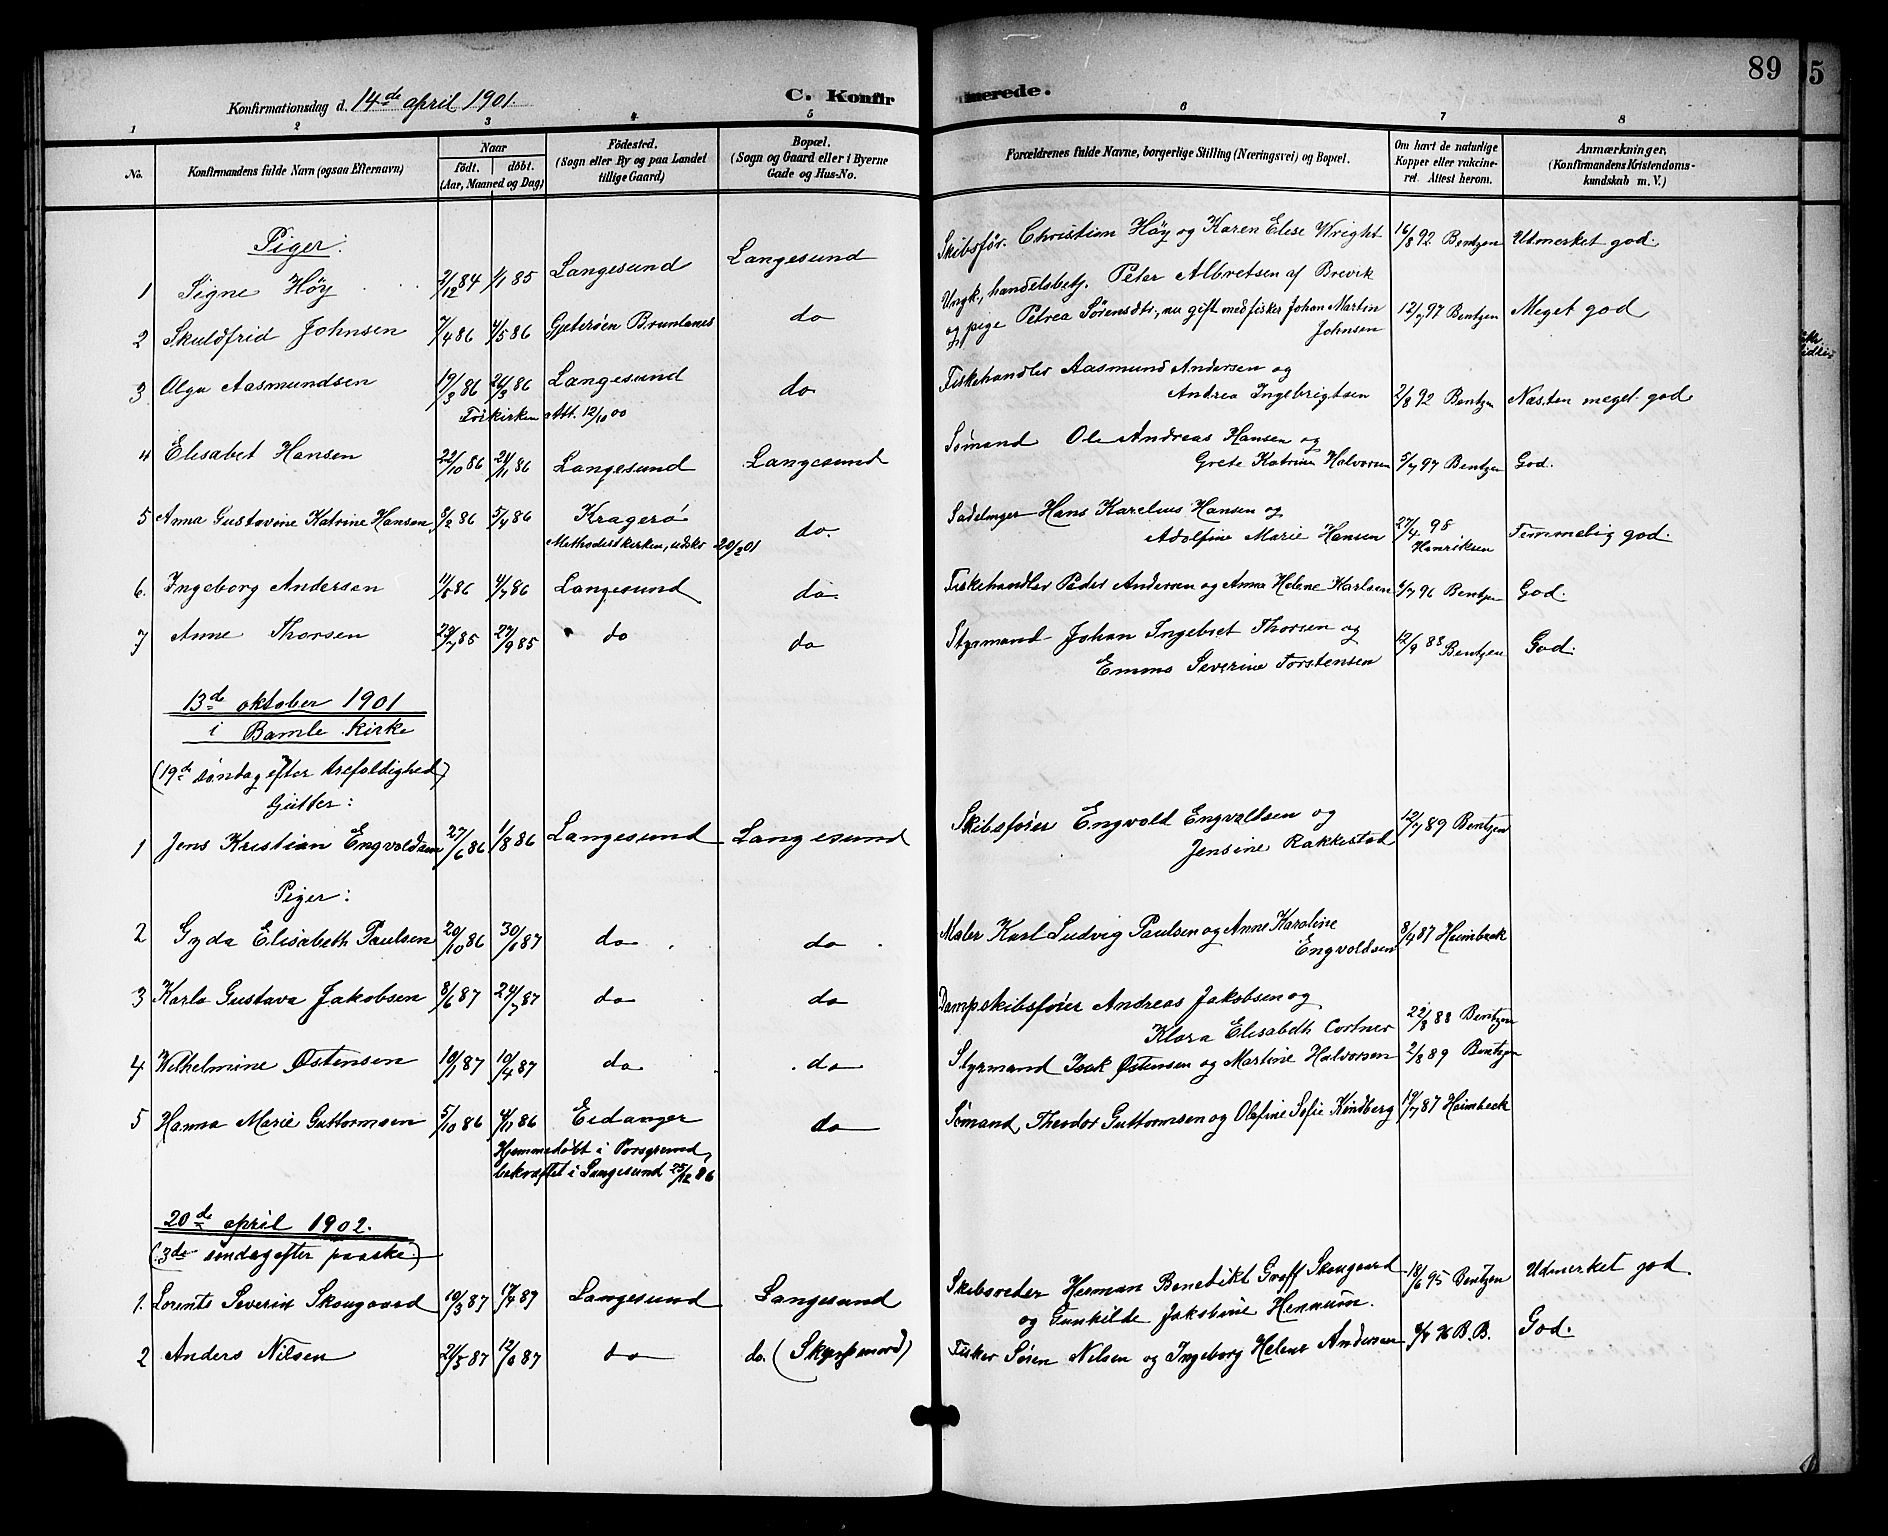 89
5
Konfirmationsdag d. 14de april 1901.
C. Konfirmerede.
1 2 3 4 5 6 7 8
No.
Konfirmandens fulde Navn (ogsaa Efternavn)
Naar
født. døbt.
(Aar, Maaned og Dag)
Fødested.
(Sogn eller By og paa Landet
tillige Gaard)
Bopæl.
(Sogn og Gaard eller i Byerne
Gade og Hus-No.
Forældrenes fulde Navne, borgerlige Stilling (Næringsvei) og Bopæl.
Om havt de naturlige
Kopper eller vakcine-
ret. Attest herom.
Anmærkninger.
(Konfirmandens Kristendoms-
kundskab m. V.)
Piger:
1 Signe Höy 2/12 84 1/1 85 Langesund Langesund Skibsför. Christian Höy og Karen Elise Wright 16/8 92 Bentzen Udmerket god.
2 Skuldfrid Johnsen 7/4 86 4/5 86 Gjeterøen Brunlanes do Ungk., handelsbetj. Peter Albretsen af Brevik
og pige Petrea Sørensdtr, nu gift med fisker Johan Martin
Johnsen 12/7 97 Bentzen Meget god
3 Olga Aasmundsen 19/3 86 26/3 86 Langesund do Fiskehandler Aasmund Andersen og
Andrea Ingebrigtsen 2/8 92 Bentzen Næsten meget god
Frikirken Att. 12/10 00
4 Elisabet Hansen 22/10 86 21/11 86 Langesund Langesund Sømand Ole Andreas Hansen og
Grete Katrine Halvorsen 5/7 97 Bentzen God.
5 Anna Gustavine Katrine Hansen 8/2 86 5/4 86 Kragerø do. Sadelmager Hans Karelius Hansen og
Adolfine Marie Hansen 27/4 98
Henriksen Temmelig god.
Methodistkirken, udskr 20/3 01
6. Ingeborg Andersen 11/5 86 4/7 86 Langesund do Fiskehandler Peder Andersen og Anna Helene Karlsen 6/7 96 Bentzen God.
7 Anne Thorsen 29/7 85 27/9 85 do do Styrmand Johan Ingebret Thorsen og
Emma Severine Torstensen 12/9 88 Bentzen God.
13de oktober 1901
i Bamle kirke
(19de søndag efter trefoldighed)
Gutter:
1 Jens Kristian Engvoldsen 27/6 86 1/8 86 Langesund Langesund Skibsfører Engvold Engvaldsen og
Jensine Rakkestad 12/7 89 Bentzen
Piger:
2 Gyda Elisabeth Paulsen 20/10 86 30/1 87 do do Maler Karl Ludvig Paulsen og Anne Karoline
Engvoldsen 8/9 87 Heimbeck
3 Karla Gustava Jakobsen 8/6 87 24/7 87 do do Dampskibsfører Andreas Jakobsen og
Klara Elisabeth Cortner 22/8 88 Bentzen
4 Wilhelmine Østensen 10/1 87 10/4 87 do do Styrmand Isak Østensen og Martine Halvorsen 2/8 89 Bentzen
5 Hanna Marie Guttormsen 5/10 86 4/11 86 Eidanger do Sømand, Theodor Guttormsen og Olefine Sofie Kindberg 19/7 87 Heimbeck
Hjemmedøbt i Porsgrund,
bekræftet i Langesund 25/12 86
20de april 1902.
(3de søndag efter paaske)
1. Lorents Severin Skougaard 10/3 87 17/4 87 Langesund Langesund Skibsreder Herman Benedikt Graff Skougaard
og Gunhilde Jakobine Hennum. 18/6 95 Bentzen Udmerket god
2 Anders Nilsen 21/5 87 do do. Fisker Søren Nilsen og Ingeborg Helene Andersen B.B. God.